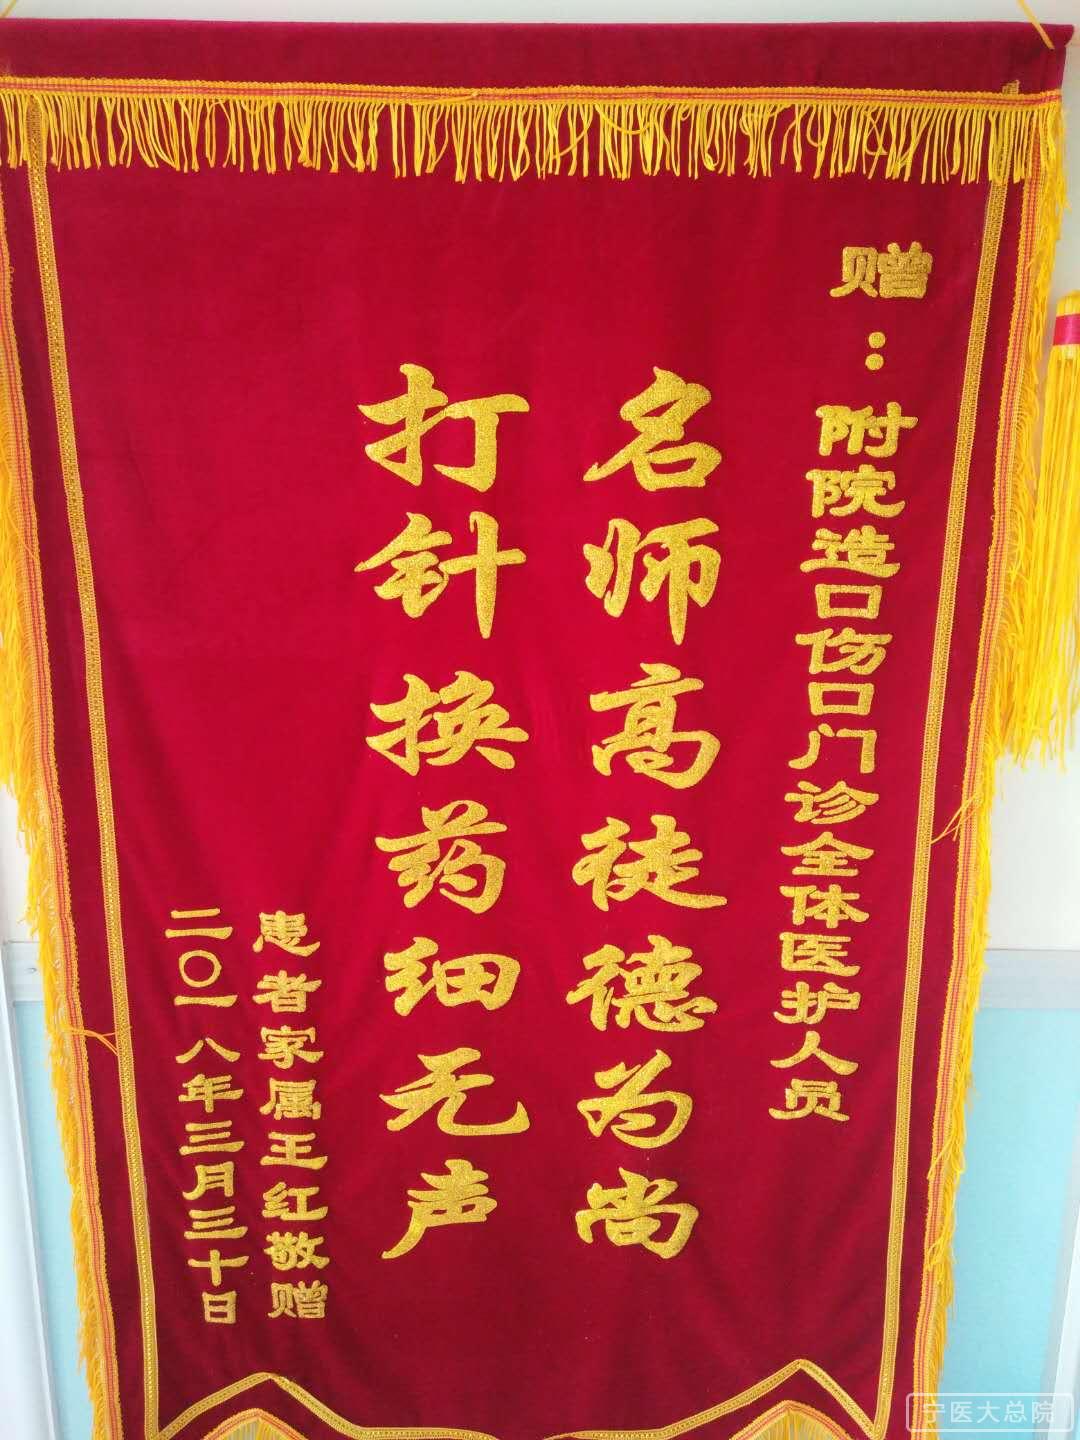 赠：附院造口伤口门诊全体医护人员
名师高徒德为尚
打针换药细无声
患者家属王红敬赠
二〇一八年三月三十日
宁医大总院